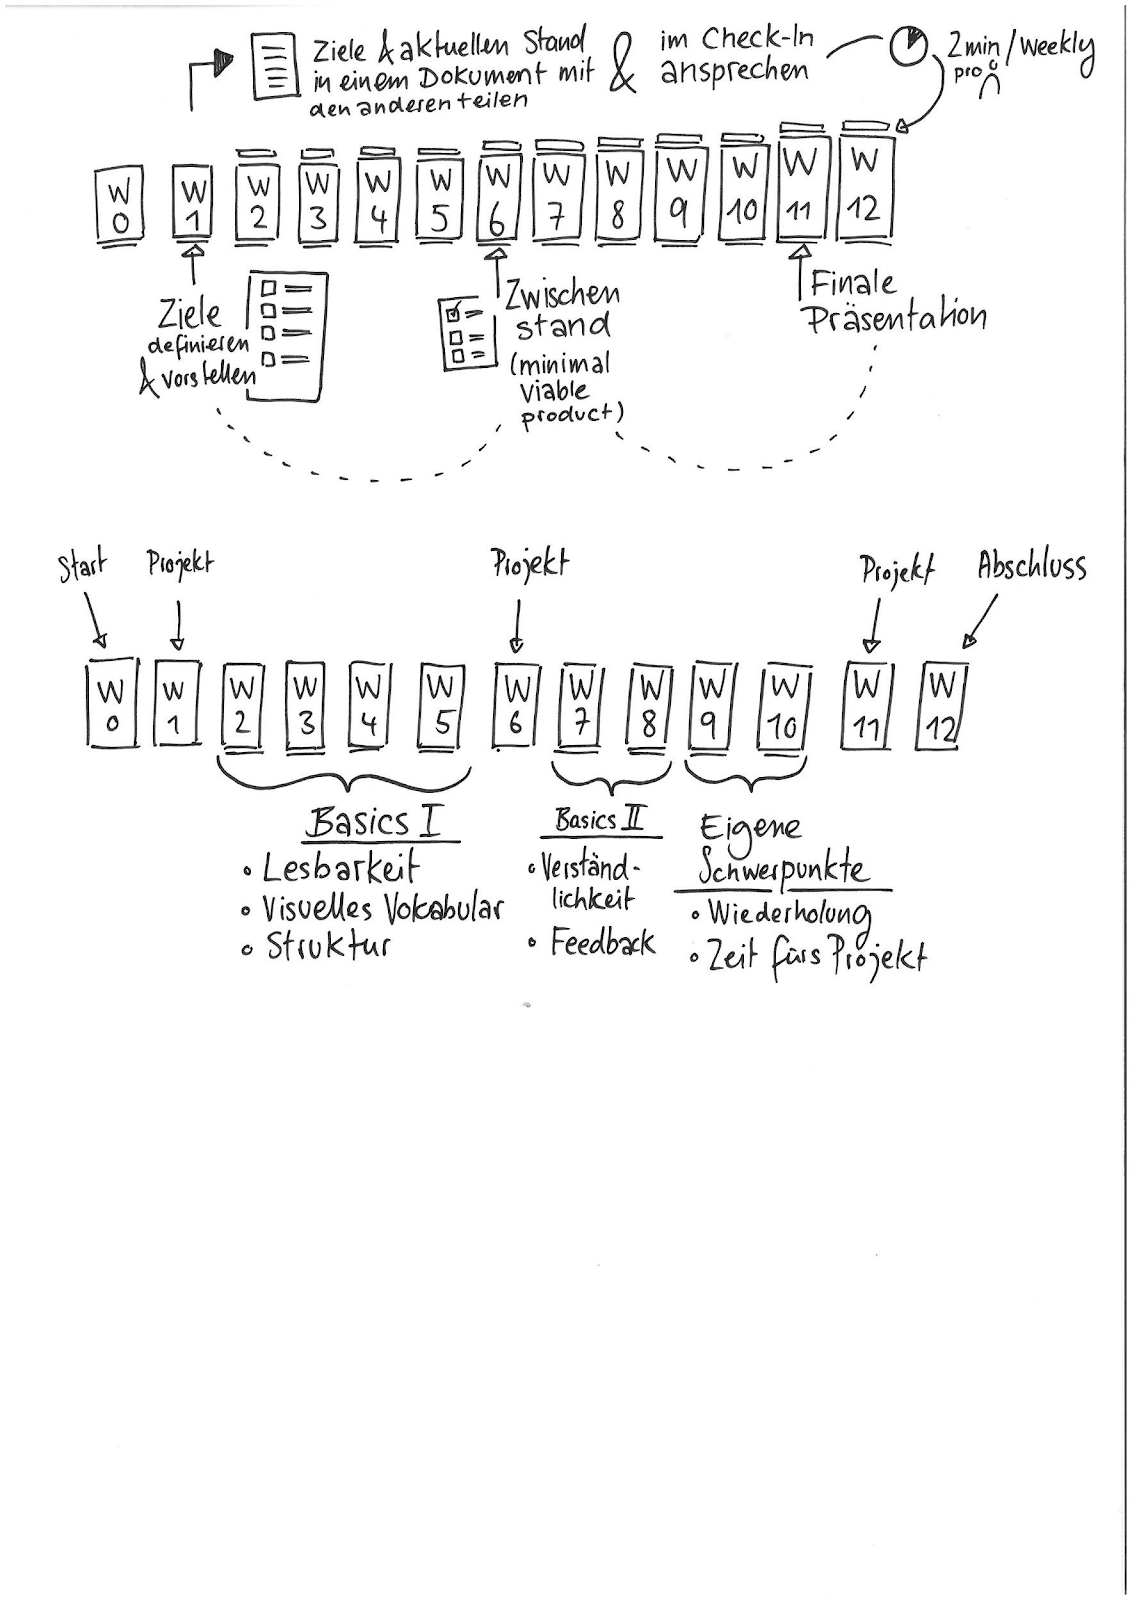 Ziele & aktuellen Stand
in einem Dokument mit
den anderen teilen
&
im Check-In
ansprechen
2min/weekly
pro
W 0
W 1
W 2
W 3
W 4
W 5
W 6
W 7
W 8
W 9
W 10
W 11
W 12
Ziele
definieren
& vorstellen
Zwischen
stand
(minimal
viable
product)
Finale
Präsentation
Start
Projekt
Projekt
Projekt
Abschluss
W 0
W 1
W 2
W 3
W 4
W 5
W 6
W 7
W 8
W 9
W 10
W 11
W 12
Basics I
• Lesbarkeit
• Visuelles Vokabular
• Struktur
Basics II
• Verständ-
lichkeit
• Feedback
Eigene
Schwerpunkte
• Wiederholung
• Zeit fürs Projekt